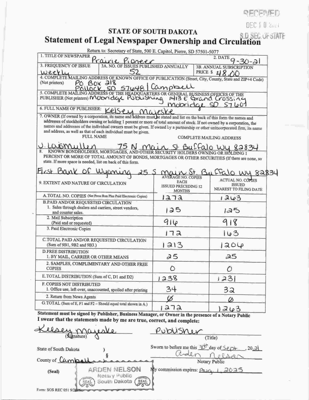 RECEIVED
S.D. SEC. OF STATE
STATE OF SOUTH DAKOTA
Statement of Legal Newspaper Ownership and Circulation
Return to: Secretary of State, 500 E. Capitol, Pierre, SD 57501-5077
1. TITLE OF NEWSPAPER Prairie Pioneer
2. DATE 9-30-21
3. FREQUENCY OF ISSUE weekly
3A. NO. OF ISSUES PUBLISHED ANNUALLY 52
3B. ANNUAL SUBSCRIPTION PRICE $ 48.00
4. COMPLETE MAILING ADDRESS OF KNOWN OFFICE OF PUBLICATION (Street, City, County, State and ZIP+4 Code)
(Not printers) PO Box 218
Pollock SD 57648 / Campbell
5. COMPLETE MAILING ADDRESS OF THE HEADQUARTERS OF GENERAL BUSINESS OFFICES OF THE
PUBLISHER (Not printers) Mobridge Publishing 1413 E Grand Crossing
Mobridge SD 57601
6. FULL NAME OF PUBLISHER: Kelsey Majeske
7. OWNER (If owned by a corporation, its name and address must be stated and
FULL NAME COMPLETE MAILING ADDRESS
75 N main St Buffalo wy 82834
8. KNOWN BONDHOLDERS, MORTGAGEES, AND OTHER SECURITY HOLDERS OWNING OR HOLDING 1
PERCENT OR MORE OF TOTAL AMOUNT OF BONDS, MORTGAGES OR OTHER SECURITIES (If there are none, so
state. If more space is needed, list on back of this form.
First Bank of Wyoming 25 S main St Buffalo wy 82834
9. EXTENT AND NATURE OF CIRCULATION
AVERAGE NO. COPIES EACH ISSUED PRECEDING 12 MONTHS
ACTUAL NO. COPIES ISSUED NEAREST TO FILING DATE
A. TOTAL NO. COPIES 1272 1263
B. PAID AND/OR REQUESTED CIRCULATION
1. Sales through dealers and carriers, street vendors, and counter sales. 125 125
2. Mail Subscription (Paid and or requested) 916 918
3. Paid Electronic Copies 172 163
C. TOTAL PAID AND/OR REQUESTED CIRCULATION (Sum of 9B1, 9B2 and 9B3.) 1213 1206
D. FREE DISTRIBUTION
1. BY MAIL, CARRIER OR OTHER MEANS 25 25
2. SAMPLES, COMPLIMENTARY AND OTHER FREE COPIES 0 0
E. TOTAL DISTRIBUTION (Sum of C, D1 and D2) 1238 1231
F. COPIES NOT DISTRIBUTED
1. Office use, left over, unaccounted, spoiled after printing 34 32
2. Return from News Agents Ø Ø
G. TOTAL (Sum of E, F1 and F2 – Should equal total shown in A.) 1272 1263
Statement must be signed by Publisher, Business Manager, or Owner in the presence of a Notary Public
I swear that the statements made by me are true, correct, and complete:
Kelsey Majeske Publisher
(Signature) (Title)
State of South Dakota
Sworn to before me this 30th day of Sept, 2021
County of Campbell
Arden Nelson
Notary Public
(Seal) ARDEN NELSON
Notary Public
SEAL South Dakota SEAL
My commission expires: Aug 1, 2025